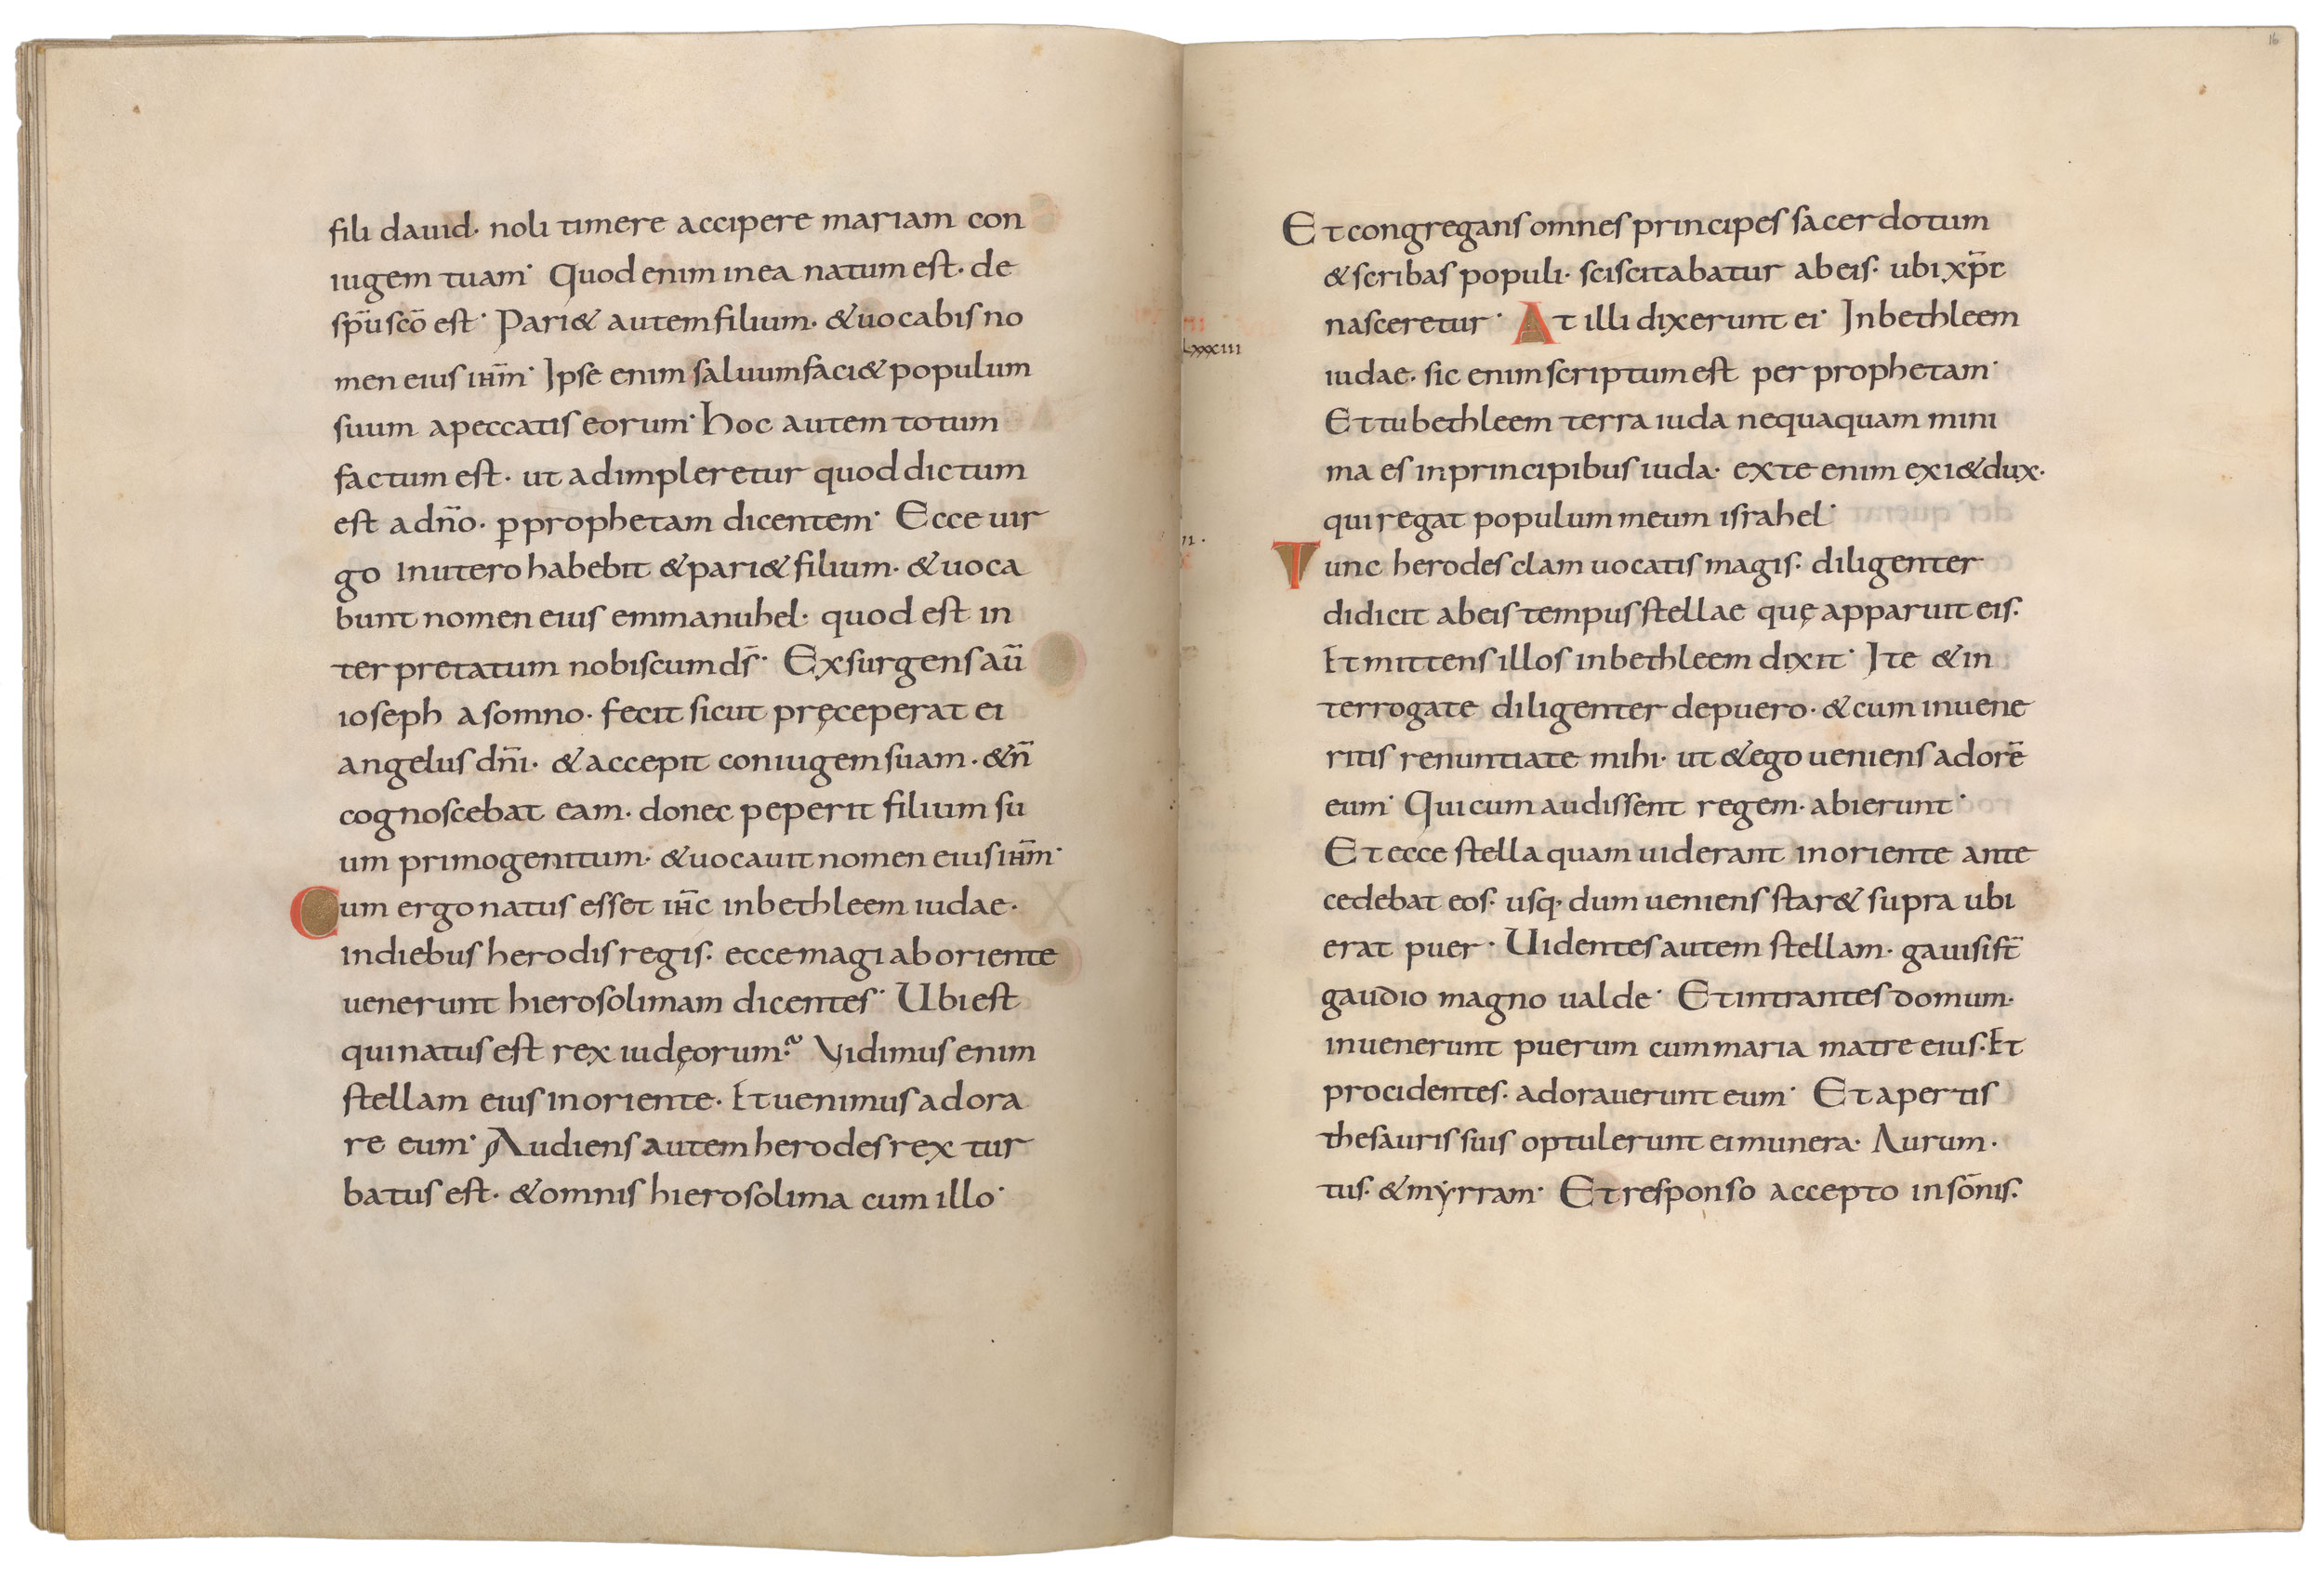 fili dauid· noli timere accipere mariam con
iugem tuam· Quod enim in ea natum est· de
sp̅u sc̅o est· Pari& autem filium· &uocabis no
men eius ih̅m· Ipse enim saluum faci& populum
suum apeccatis eorum· hoc autem totum
factum est· ut adimpleretur quod dictum
est adn̅o· ꝑ prophetam dicentem· Ecce uir
go inutero habebit &pari& filium· &uoca
bunt nomen eius emmanuhel· quod est in
terpretatum nobiscum ds̅· Exsurgens au̅
ioseph asomno· fecit sicut pręceperat ei
angelus dn̅i· &accepit coniugem suam· &n̅
cognoscebat eam· donec peperit filium su
um primogenitum· &uocauit nomen eius ih̅m·
Cum ergo natus esset ih̅c inbethleem iudae·
indiebus herodis regis· ecce magi aboriente
uenerunt hierosolimam dicentes· Ubi est
qui natus est rex iudęorum? Vidimus enim
stellam eius inoriente· Et uenimus adora
re eum· Audiens autem herodes rex tur
batus est· &omnis hierosolima cum illo·
16
Et congregans omnes principes sacerdotum
&scribas populi· sciscitabatur abeis· ubi xp̅c
nasceretur· At illi dixerunt ei· Inbethleem
LXXXIII
iudae· sic enim scriptum est per prophetam·
Et tu bethleem terra iuda nequaquam mini
ma es inprincipibus iuda· exte enim exi& dux·
qui regat populum meum israhel·
Tunc herodes clam uocatis magis· diligenter
didicit abeis tempus stellae quę apparuit eis·
Et mittens illos inbethleem dixit· Ite &in
terrogate diligenter depuero· &cum inuene
ritis renuntiate mihi· ut &ego ueniens adore̅
eum· Qui cum audissent regem· abierunt·
Et ecce stella quam uiderant inoriente ante
cedebat eos· usq· dum ueniens star& supra ubi
erat puer· Uidentes autem stellam· gauisi st̅
gaudio magno ualde· Et intrantes domum·
inuenerunt puerum cum maria matre eius· Et
procidentes· adorauerunt eum· Et apertis
thesauris suis optulerunt ei munera· Aurum·
tus· &myrram· Et responso accepto inso̅nis·